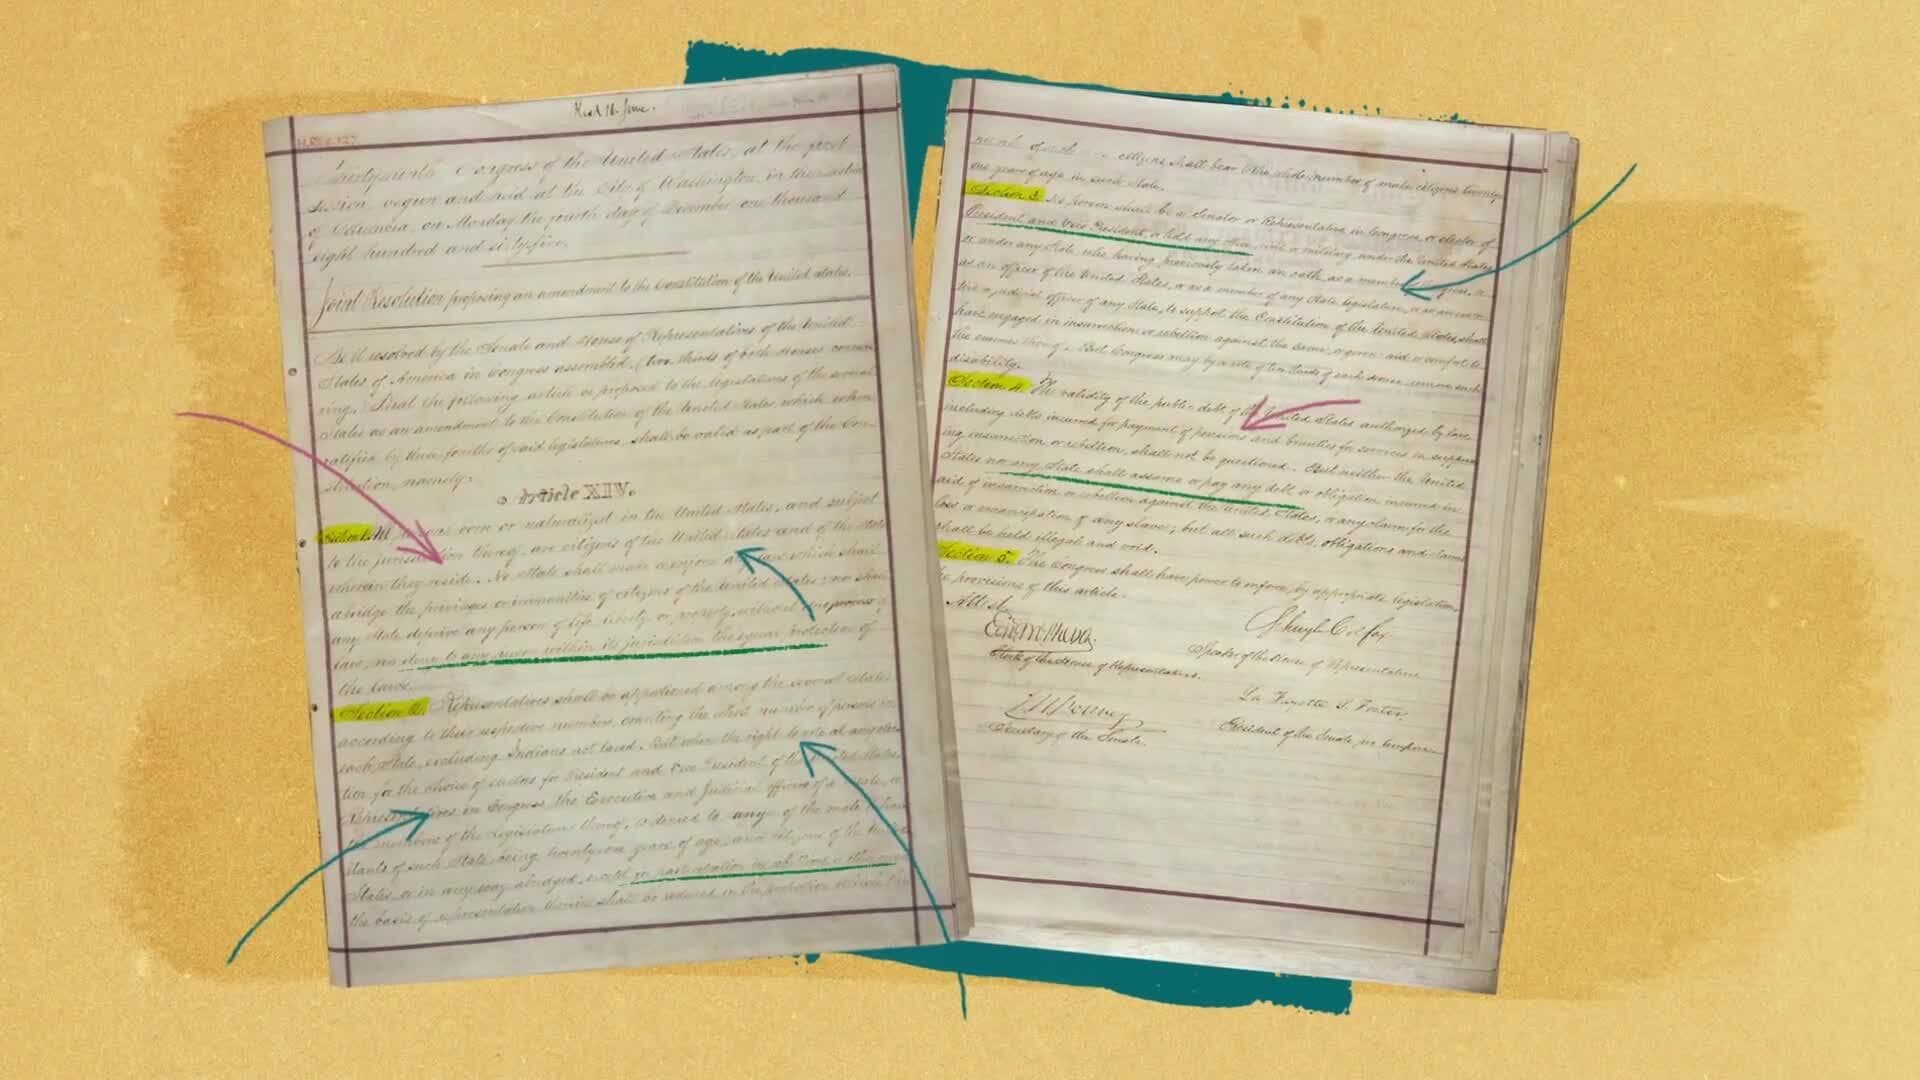 Thirty-ninth Congress of the United States, at the first
session, begun and held at the City of Washington, in the
of December, one thousand
eight hundred and sixty-five.
Joint Resolution proposing an amendment to the Constitution of the United States.
Be it resolved by the Senate and House of Representatives of the United
States of America in Congress assembled, (two thirds of both Houses concur-
ring,) That the following article be proposed to the legislatures of the several
States as an amendment to the Constitution of the United States, which, when
ratified by three fourths of said legislatures, shall be valid as part of the Con-
stitution, namely:
Article XIV.
Section 1. All born or naturalized in the United States, and subject
to the thereof, are citizens of the United States and of the State
wherein they reside. No State shall make law which shall
abridge the privileges or immunities of citizens of the United States; nor shall
any State deprive any person of life, liberty, or property, without due process of
law, within its jurisdiction the equal protection of
the laws.
Section 2. Representatives shall be apportioned among the several States
according to their respective numbers, counting the whole number of persons in
each State, excluding Indians not taxed. But when the right to vote at any elec-
tion for the choice of electors for President and Vice President of the United States,
Representatives in Congress, the Executive and Judicial officers of a State, or
the members of the Legislature thereof, is denied to any of the male inhabi-
tants of such State, being twenty-one years of age, and citizens of the United
States, or in any way abridged, except
the basis of representation therein shall be reduced in the proportion which the
number of such citizens shall bear to the whole number of male citizens twenty
one years of age in such State.
Section 3. No person shall be a Senator or Representative in Congress, or elector of
President and Vice President, or hold any office, civil or military, under the United States,
or under any State, who, having previously taken an oath, as a member
as an officer of the United States, or as a member of any State legislature, or as an execu-
tive or judicial officer of any State, to support the Constitution of the United States, shall
have engaged in insurrection or rebellion against the same, or given aid or comfort to
the enemies thereof. But Congress may by a vote of two thirds of each House, remove such
disability.
Section 4. The validity of the public debt of the United States, authorized by law,
including debts incurred for payment of pensions and bounties for services in suppress-
ing insurrection or rebellion, shall not be questioned. But neither the United
States nor any State shall assume or pay any debt or obligation incurred in
aid of insurrection or rebellion against the United States, or any claim for the
loss or emancipation of any slave; but all such debts, obligations and claims
shall be held illegal and void.
Section 5. The Congress shall have power to enforce, by appropriate legislation,
the provisions of this article.
Attest,
Schuyler Colfax
Clerk of the House of Representatives.
Speaker of the House of Representatives
La Fayette S. Foster,
Secretary of the Senate.
President of the Senate, pro tempore